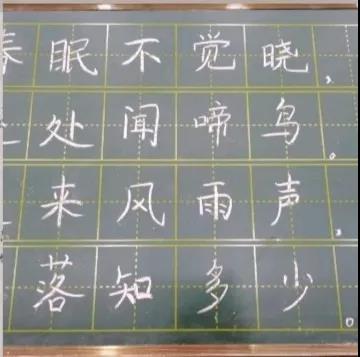 春眠不觉晓，
处闻啼鸟。
来风雨声，
落知多少。